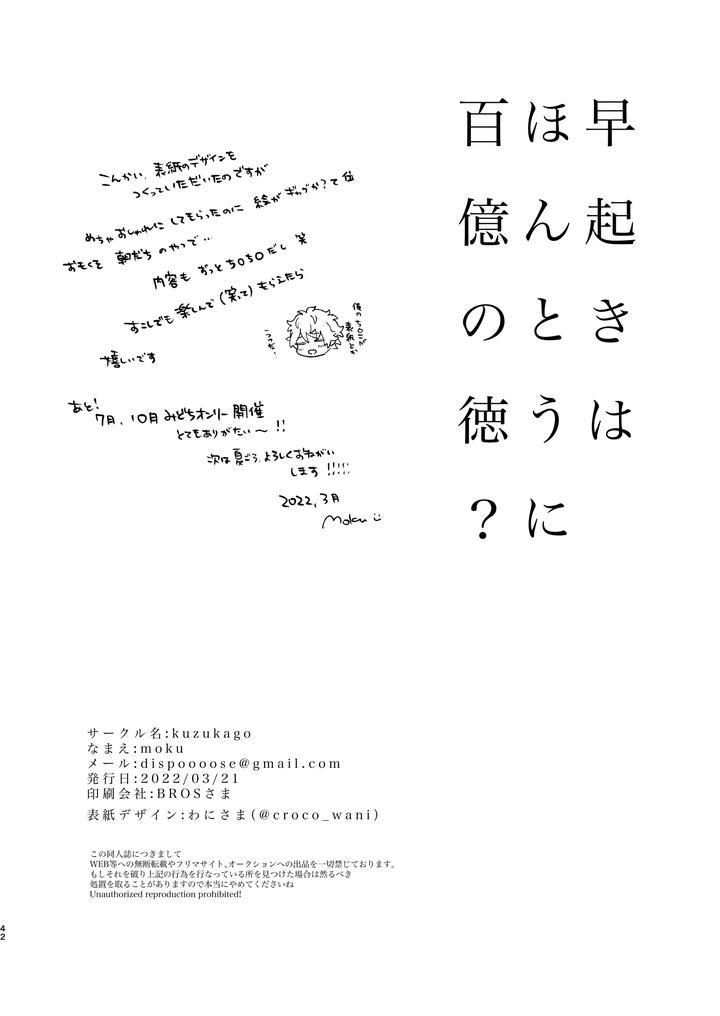 早起きは
ほんとうに
百億の徳？
こんかい、表紙のデザインを
つくっていただいたのですが
めちゃおしゃれに してもらったのに 絵がギャグか？て位
おもくそ 朝だち のやつで…
内容も ずっとち〇ち〇だし 笑
すこしでも楽しんで(笑って)もらえたら
嬉しいです
俺のち〇こが
表紙とか
うそだ！
あと！
7月、10月 みどちオンリー開催
とてもありがたい〜!!
次は夏ごろ、よろしくおねがい
します!!!!!
2022,3月
Moku
サークル名:kuzukago
なまえ:moku
メール:dispoooose@gmail.com
発行日:2022/03/21
印刷会社:BROSさま
表紙デザイン:わにさま(@croco_wani)
この同人誌につきまして
WEB等への無断転載やフリマサイト、オークションへの出品を一切禁じております。
もしそれを破り上記の行為を行なっている所を見つけた場合は然るべき
処置を取ることがありますので本当にやめてくださいね
Unauthorized reproduction prohibited!
42